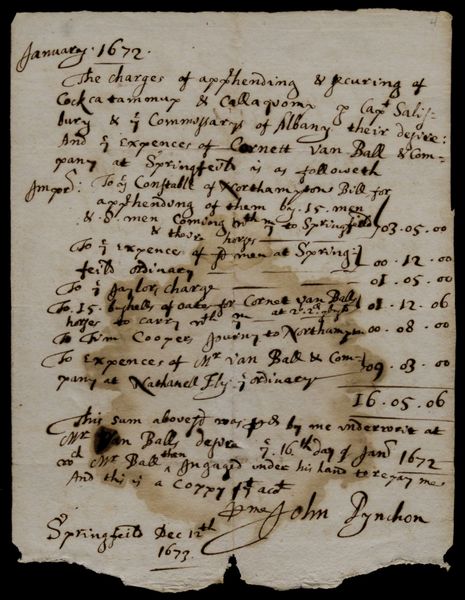 January. 1672.
The charges of apphending & securing of
Cockcatammup & Callaquomi p Capt Salis-
bury & ye Commossarys of Albany their desire:
And ye Expences of Cornett Van Ball & Com-
pany at Springfeild is as followeth
Impr: To ye Constable of Northamptons Bill for
apphending of them by. 15. men
& 8. men coming wth m to Springfeild
& their horses 03.05.00
To ye Expence of sd men at Spring-
feild ordinary 00.12.00
To ye Jaylors Charge 01.05.00
To. 15. bushells of oates for Cornet van Balls
horses to carry wth m at 2s. 2d 01.12.06
To Tim Coopers Journy to Northampton 00.08.00
To Expences of Mr Van Ball & Com-
pany at Nathanell Ely ye ordinary 09.03.00
16.05.06
This sum abovesd was pd by me underwrit at
Mr Van Balls desire ye. 16th day of Janr 1672
wch Mr Ball then Ingaged under his hand to repay me
And this is a Coppy of ye acot
p me John Pynchon
Springfeild Dec 12th
1673.